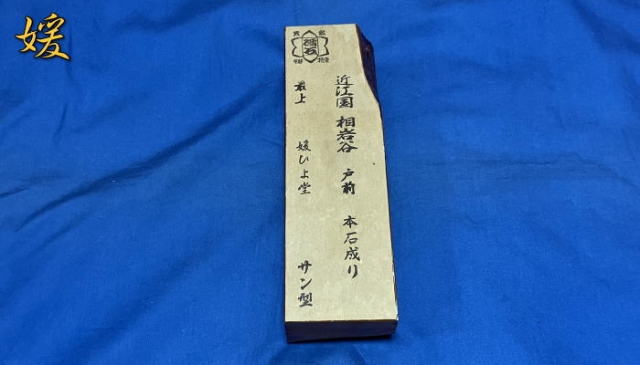 媛
近江国 相岩谷 戸前 本石成り
最上 媛ひよ堂 サン型